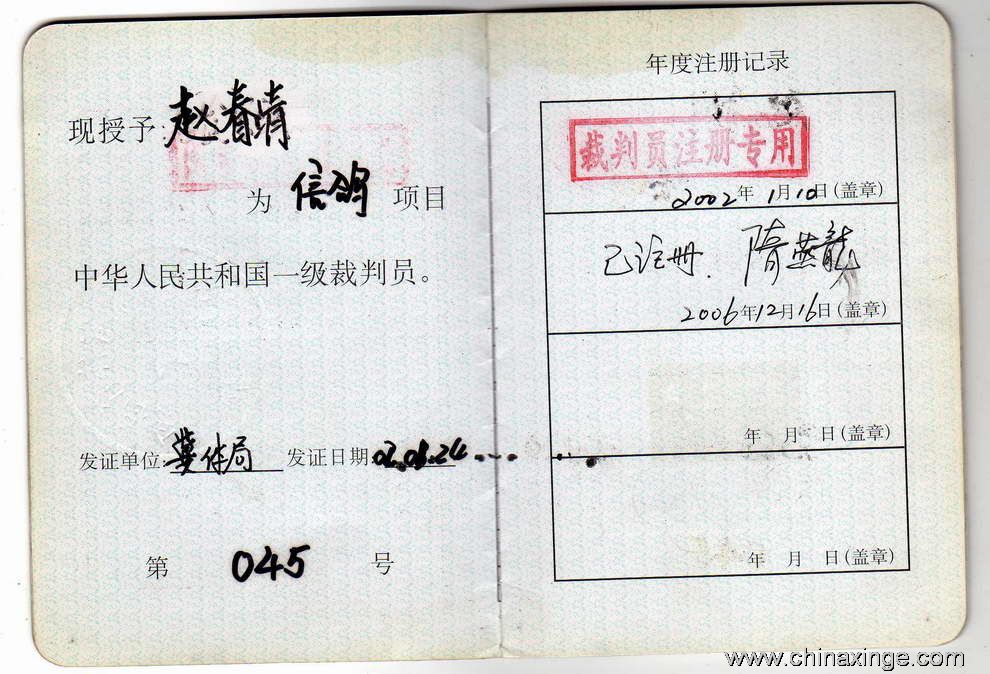 现授予 赵春晴
为 信鸽 项目
中华人民共和国一级裁判员。
发证单位 体局 发证日期
第 045 号
年度注册记录
裁判员注册专用
2002年 1月10日(盖章)
已注册. 隋燕龍
2006年12月16日(盖章)
年 月 日(盖章)
年 月 日(盖章)
www.chinaxinge.com